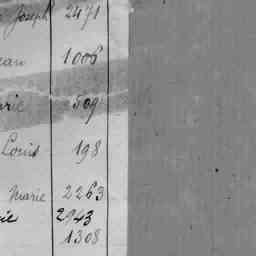 Joseph 2471
1006
509
Louis 198
Marie 2263
2943
1308